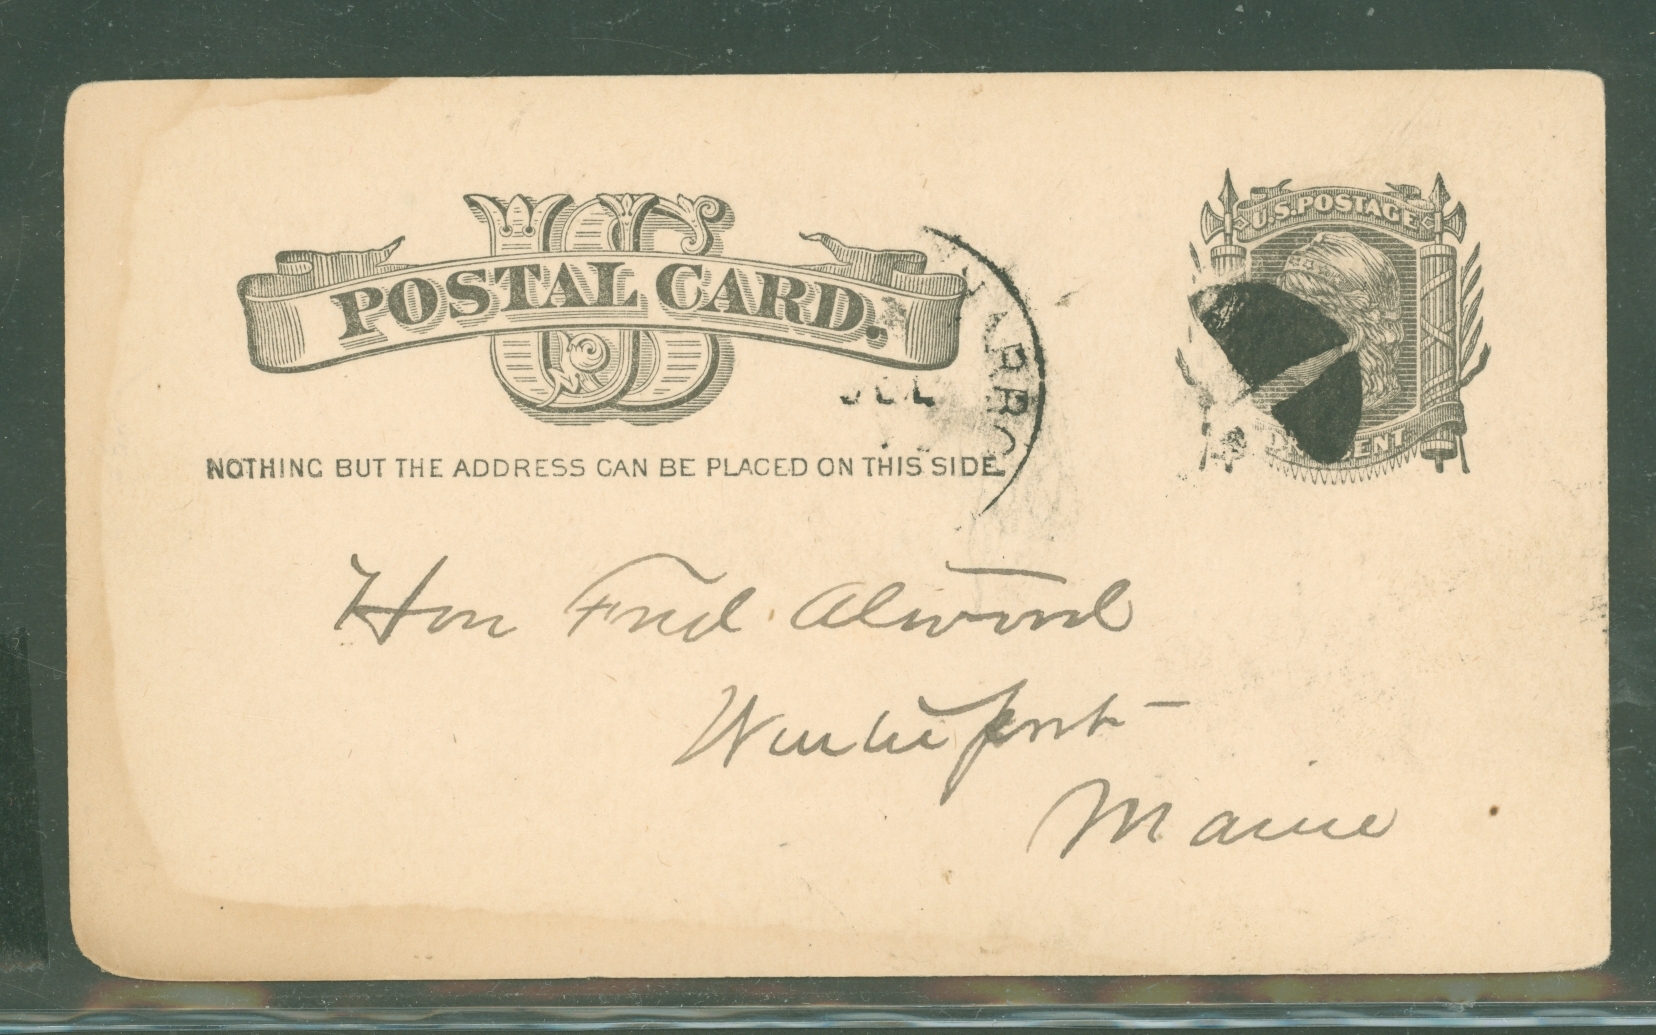 US
POSTAL CARD.
U.S. POSTAGE
ONE CENT
JUL
NOTHING BUT THE ADDRESS CAN BE PLACED ON THIS SIDE.
Hon Fred Alwood
Winterport
Maine